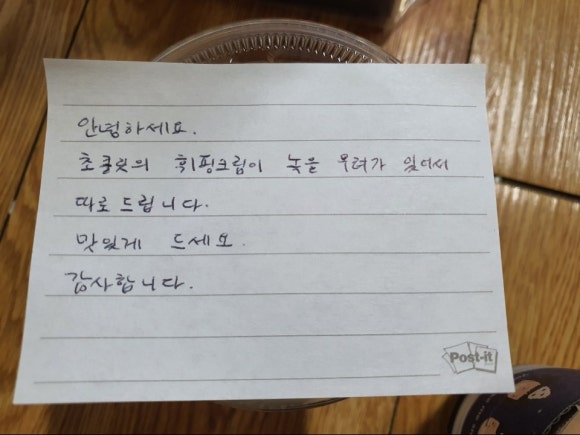 안녕하세요.
초콜릿의 휘핑크림이 녹을 우려가 있어서
따로 드립니다.
맛있게 드세요.
감사합니다.
Post-it